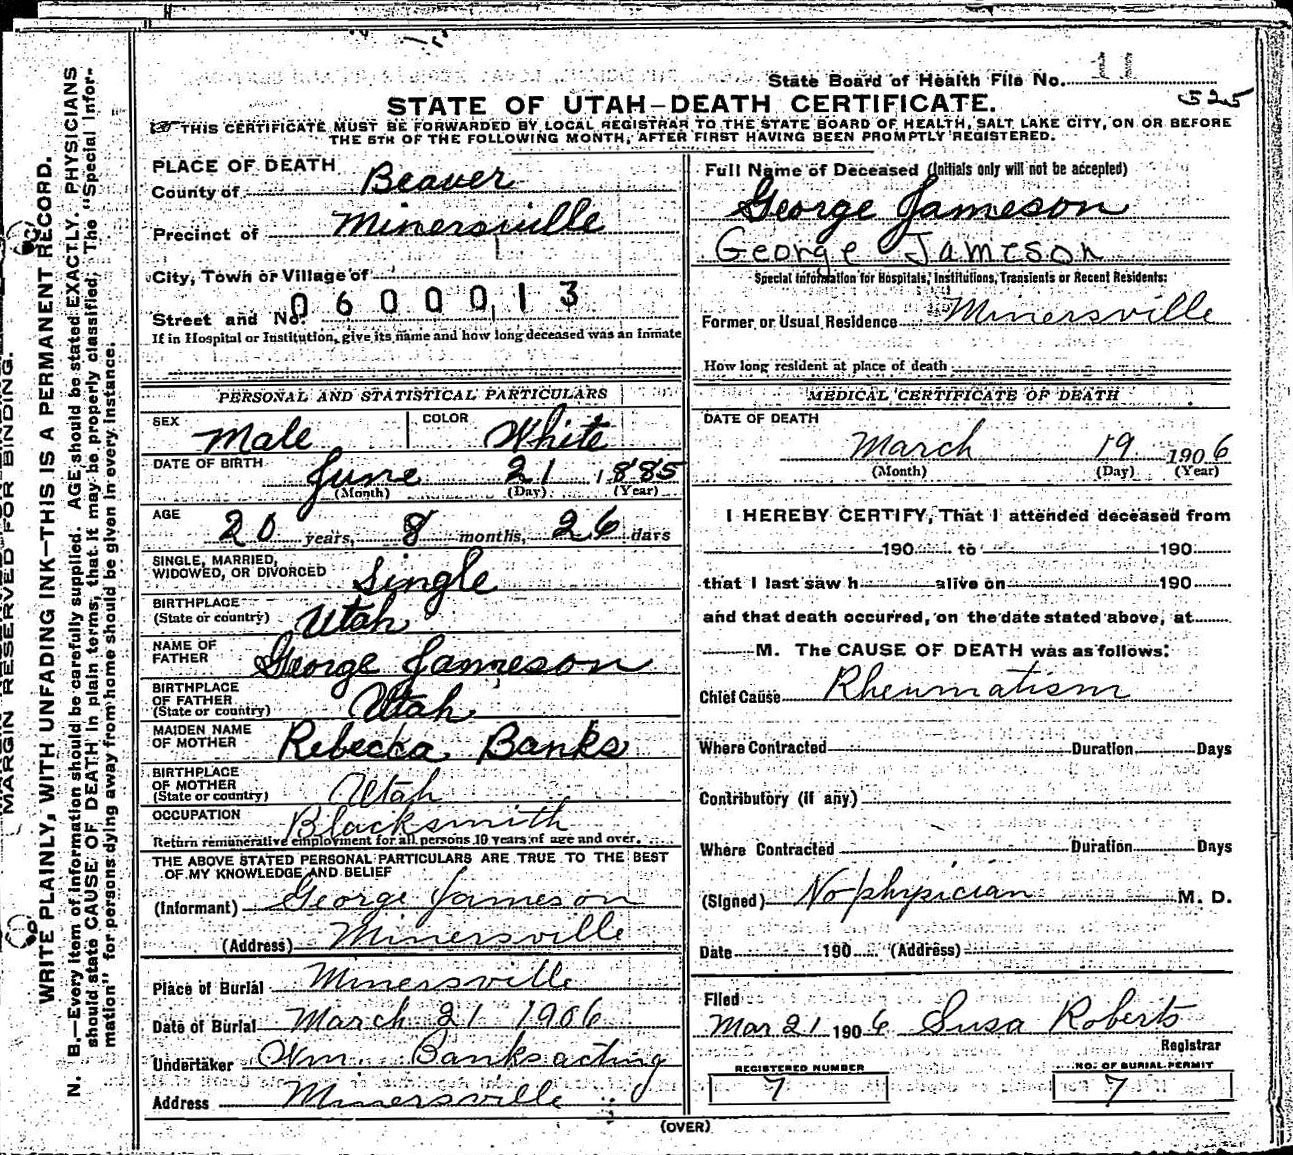 MARGIN RESERVED FOR BINDING.
WRITE PLAINLY, WITH UNFADING INK—THIS IS A PERMANENT RECORD.
N. B.—Every item of information should be carefully supplied. AGE should be stated EXACTLY. PHYSICIANS
should state CAUSE OF DEATH in plain terms, that it may be properly classified. The "Special Infor-
mation" for persons dying away from home should be given in every instance.
State Board of Health File No. 11
525
STATE OF UTAH—DEATH CERTIFICATE.
THIS CERTIFICATE MUST BE FORWARDED BY LOCAL REGISTRAR TO THE STATE BOARD OF HEALTH, SALT LAKE CITY, ON OR BEFORE
THE 5TH OF THE FOLLOWING MONTH, AFTER FIRST HAVING BEEN PROMPTLY REGISTERED.
PLACE OF DEATH
County of Beaver
Precinct of Minersville
City, Town or Village of
0600013
Street and No.
If in Hospital or Institution, give its name and how long deceased was an inmate
PERSONAL AND STATISTICAL PARTICULARS
SEX Male COLOR White
DATE OF BIRTH June 21 1885
(Month) (Day) (Year)
AGE 20 years, 8 months, 26 days
SINGLE, MARRIED,
WIDOWED, OR DIVORCED Single
BIRTHPLACE
(State or country) Utah
NAME OF
FATHER George Jameson
BIRTHPLACE
OF FATHER
(State or country) Utah
MAIDEN NAME
OF MOTHER Rebecca Banks
BIRTHPLACE
OF MOTHER
(State or country) Utah
OCCUPATION Blacksmith
Return remunerative employment for all persons 10 years of age and over.
THE ABOVE STATED PERSONAL PARTICULARS ARE TRUE TO THE BEST
OF MY KNOWLEDGE AND BELIEF
(Informant) George Jameson
(Address) Minersville
Place of Burial Minersville
Date of Burial March 21 1906
Undertaker Wm. Banks acting
Address Minersville
Full Name of Deceased (Initials only will not be accepted)
George Jameson
George Jameson
Special Information for Hospitals, Institutions, Transients or Recent Residents:
Former or Usual Residence Minersville
How long resident at place of death
MEDICAL CERTIFICATE OF DEATH
DATE OF DEATH
March 19 1906
(Month) (Day) (Year)
I HEREBY CERTIFY, That I attended deceased from
190 to 190
that I last saw h alive on 190
and that death occurred, on the date stated above, at
M. The CAUSE OF DEATH was as follows:
Chief Cause Rheumatism
Where Contracted Duration Days
Contributory (if any)
Where Contracted Duration Days
(Signed) No phypician M. D.
Date 190 (Address)
Filed
Mar 21 1906 Susa Roberts
Registrar
REGISTERED NUMBER
7
NO. OF BURIAL PERMIT
7
(OVER)